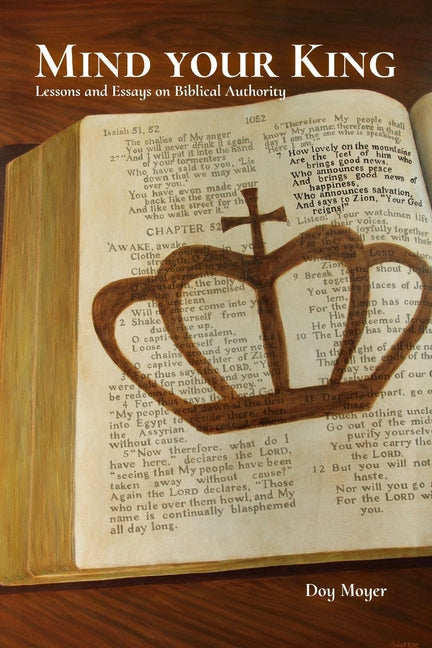 MIND YOUR KING
Lessons and Essays on Biblical Authority
Isaiah 51, 52
1052
The chalice of My anger
You will never drink it again.
27 "And I will put it into the hand
of your tormentors
Who have said to you, 'Lie
down that we may walk
over you.'
You have even made your
back like the ground
And like the street for those
who walk over it."
CHAPTER 52
"AWAKE, awake
Clothe yourself in
Clothe yourself in your
the holy
uncircumcised
unclean
Will no more come into you
2 Shake yourself from
dust
up,
O captive Jerusalem,
Loose yourself from
chains around your neck,
O captive daughter of Zion
3 For thus says the LORD, "You
were sold for nothing and you will
be redeemed without money."
4 For thus says the Lord GOD,
"My people went down at the first
into Egypt to reside there, then
the Assyrian oppressed them
without cause.
5 "Now therefore, what do I
have here," declares the LORD,
"seeing that My people have been
taken away without cause?"
Again the LORD declares, "Those
who rule over them howl, and My
name is continually blasphemed
all day long.
6 "Therefore My people shall
know My name; therefore in that
day I am the one who is speaking,
'Here I am.'"
How lovely on the mountains
Are the feet of him who
brings good news,
Who announces peace
And brings good news of
happiness,
Who announces salvation,
And says to Zion, "Your God
reigns!"
Listen! Your watchmen lift
their voices,
They shout joyfully together
For they will see with their
9 Break forth, shout
together,
You waste places of Je-
For the LORD has com-
His people,
He has redeemed J
10 The LORD has bared
In the sight of all
That all the ends of the
may see
The salvation of our G
11 Depart, depart, go o
there,
Touch nothing unclea
Go out of the mid
purify yourselve
You who carry the
the LORD.
12 But you will not
haste,
Nor will you go a
For the LORD wi
you,
Doy Moyer